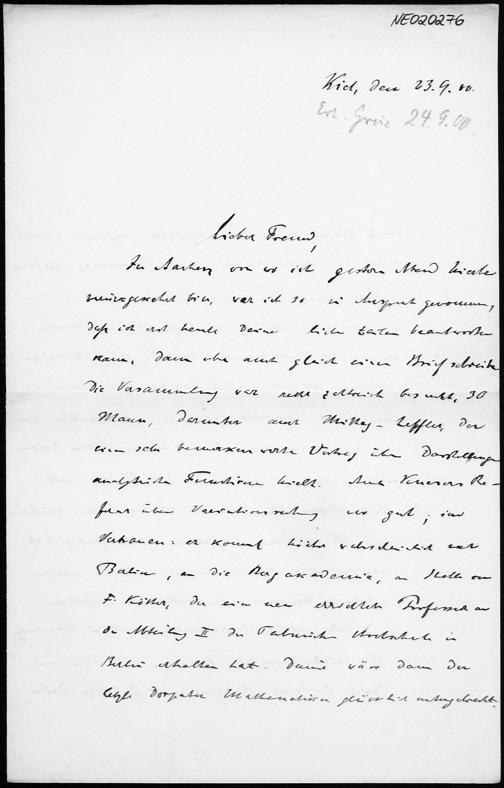 NE020276
Kiel, den 23.9.00.
24.9.00.
Lieber Freund,
In Aachen, von wo ich gestern Abend hierher
zurückgekehrt bin, war ich so in Anspruch genommen,
daß ich erst heute Deine lieben Zeilen beantworten
kann, dann aber auch gleich einen Brief schreibe.
Die Versammlung war recht zahlreich besucht, 30
Mann, darunter auch Mittag-Leffler, der
einen sehr bemerkenswerten Vortrag über Darstellungen
analytischer Functionen hielt. Auch Knesers Re-
ferat über Variationsrechnung war gut; im
Vertrauen: er kommt höchst wahrscheinlich nach
Berlin, an die Bergakademie, an Stelle von
F. Kötter, der eine neu errichtete Professur an
der Abteilung II der Technischen Hochschule in
Berlin erhalten hat. Damit wäre dann der
letzte Dorpater Mathematiker glücklich untergebracht.